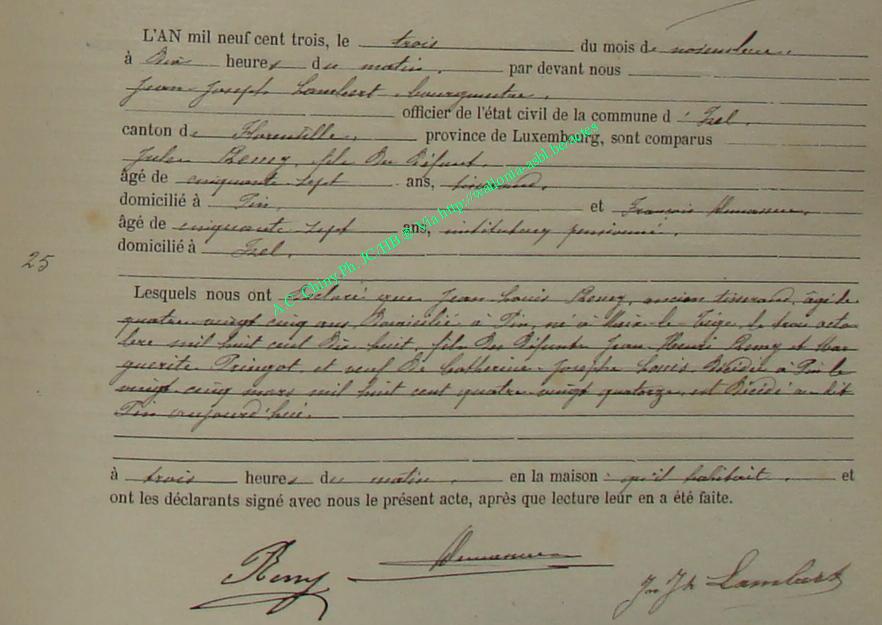 L'AN mil neuf cent trois, le trois du mois de novembre,
à dix heures du matin, par devant nous
Jean Joseph Lambert, bourgmestre,
officier de l'état civil de la commune d'Izel,
canton de Florenville, province de Luxembourg, sont comparus
Jules Remy, fils du défunt
âgé de cinquante sept ans, tisserand,
domicilié à Pin, et François
âgé de cinquante sept ans, instituteur pensionné,
domicilié à Izel,
25
Lesquels nous ont déclaré que Jean Louis Remy, ancien tisserand, âgé de
quatre vingt cinq ans domicilié à Pin, né à Meix-le-Tige, le trois octo
bre mil huit cent dix huit, fils des défunts Jean Henri Remy et Mar
guerite Pringot et veuf de Catherine Joseph Louis décédée à Pin le
vingt cinq mars mil huit cent quatre vingt quatorze, est décédé au dit
Pin aujourd'hui
à trois heures du matin, en la maison qu'il habitait, et
ont les déclarants signé avec nous le présent acte, après que lecture leur en a été faite.
Remy
Jn Jh Lambert
A.G. Chiny Ph. JC/HB @ Via http://wallonia-asbl.be/actes